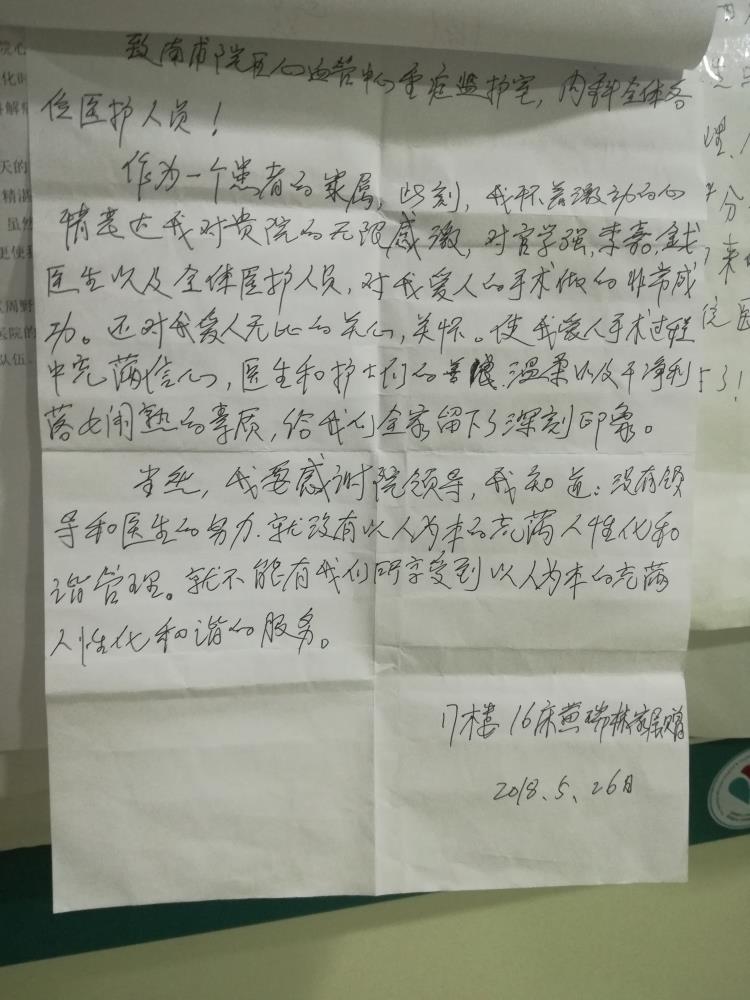 致南甫院区心血管中心重症监护室，内科全体各
位医护人员！
作为一个患者的家属，此刻，我怀着激动的心
情表达我对贵院的无限感激，对官学强，李嘉，钱
医生以及全体医护人员，对我爱人的手术做的非常成
功。还对我爱人无比的关心，关怀。使我爱人手术过程
中充满信心，医生和护士们的善良、温柔以及干净利
落女闲熟的素质，给我们全家留下了深刻印象。
当然，我要感谢院领导，我知道：没有领
导和医生的努力．就没有以人为本的充满人性化和
谐管理。就不能有我们所享受到以人为本的充满
人性化和谐的服务。
17楼 16床黄瑞林家属赠
2018、5、26日
院心
化时
解
天的
精湛
虽然
更使我
周野
医院的
队伍
理
分
来
院医
了！